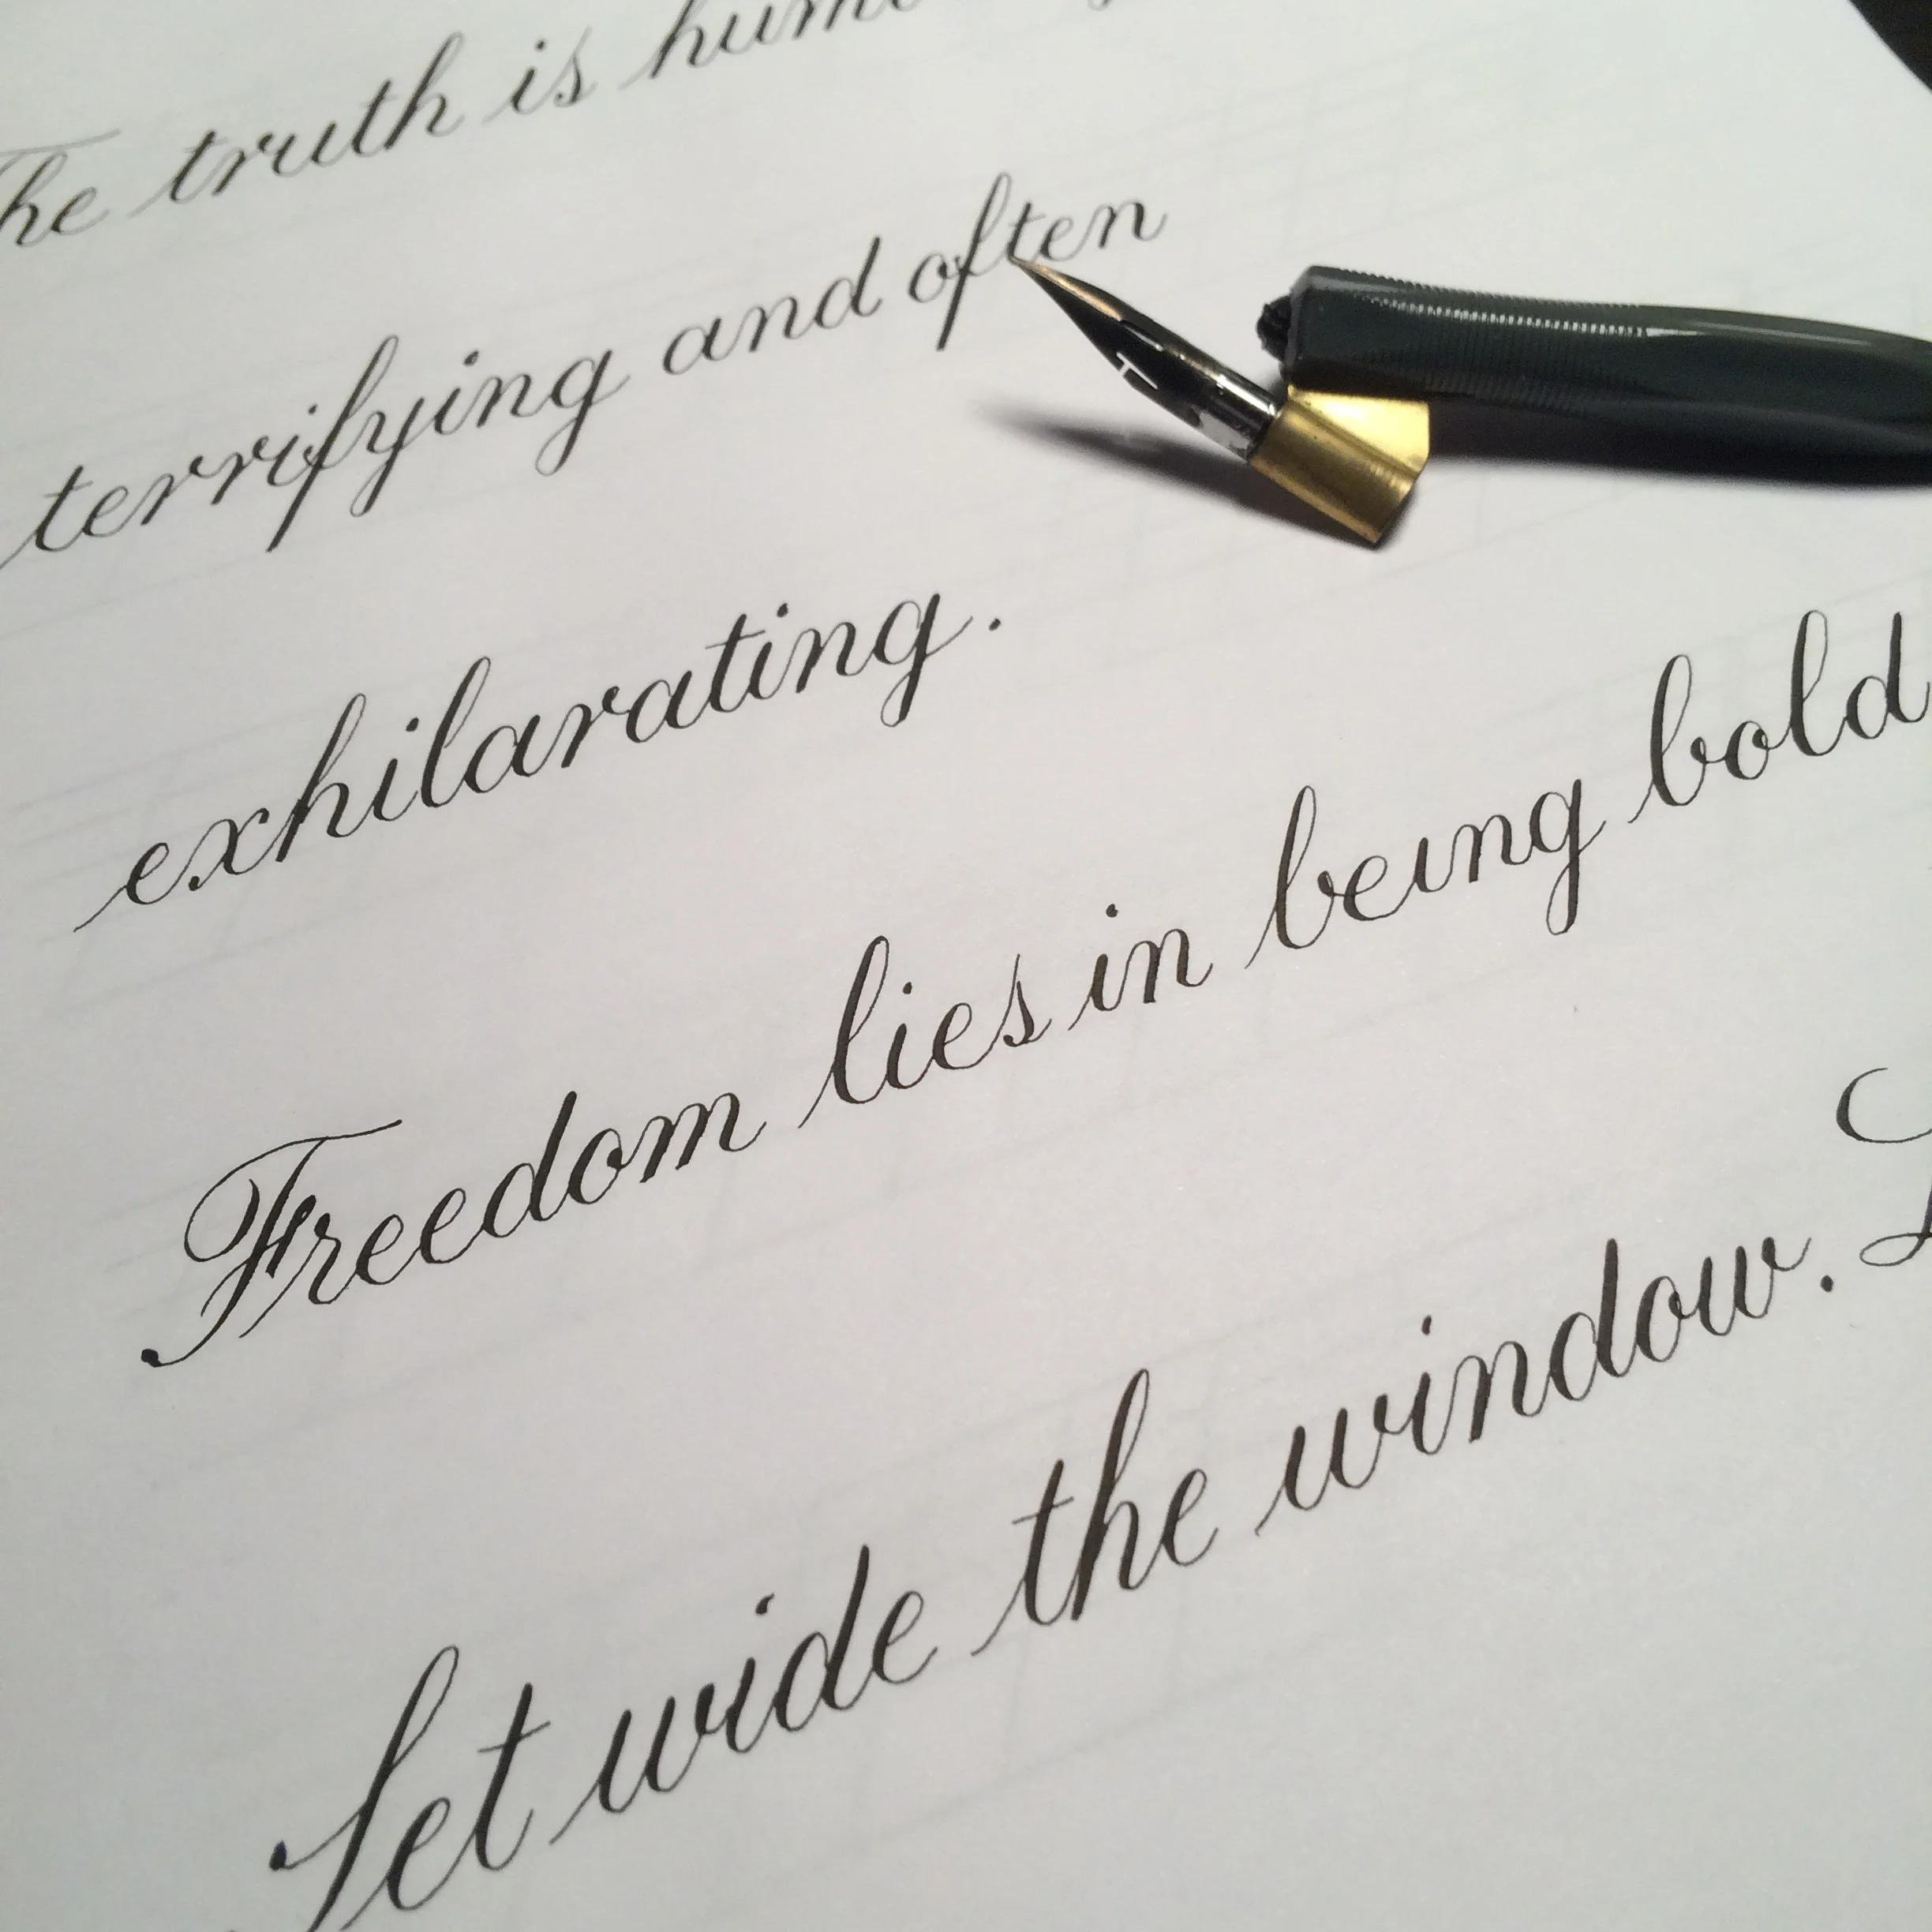 The truth is
terrifying and often
exhilarating.
Freedom lies in being bold
Set wide the window.